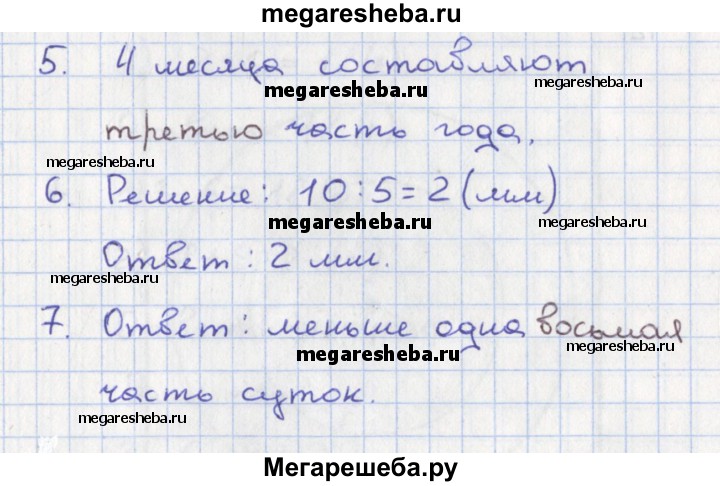 megaresheba.ru
5. 4 месяца составляют
megaresheba.ru
megaresheba.ru
третью часть года.
megaresheba.ru
6. Решение: 10:5=2 (мм)
megaresheba.ru
Ответ: 2 мм.
megaresheba.ru
7. Ответ: меньше одна восьмая
megaresheba.ru
megaresheba.ru
часть суток.
megaresheba.ru
Мегарешеба.ру